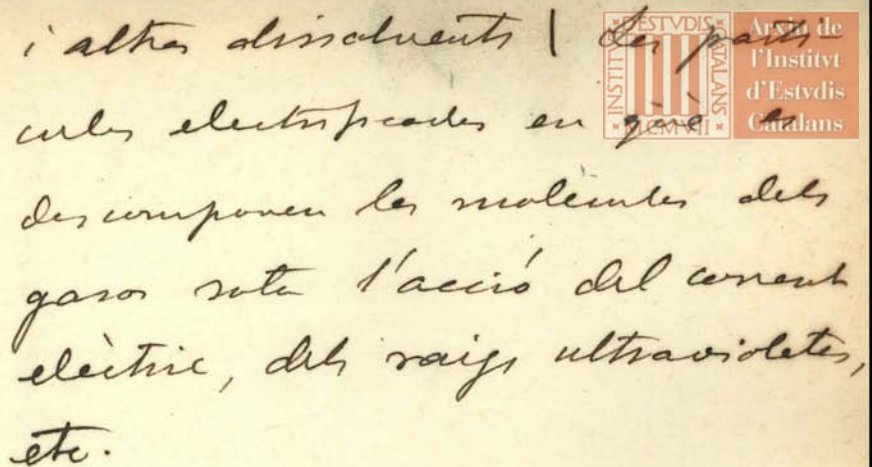 i altres dissolvents | des partí-
cules electrificades en què es
descomponen les molècules dels
gasos sota l'acció del corrent
elèctric, dels raigs ultraviolets,
etc.
INSTITVT D'ESTVDIS CATALANS
MCMVII
Arxiu de
l'Institvt
d'Estvdis
Catalans